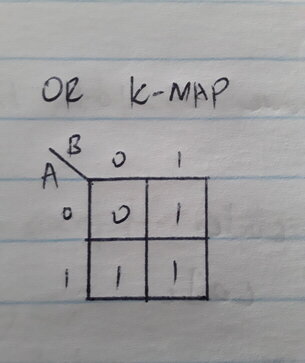 OR K-MAP
B 0 1
A
0 0 1
1 1 1